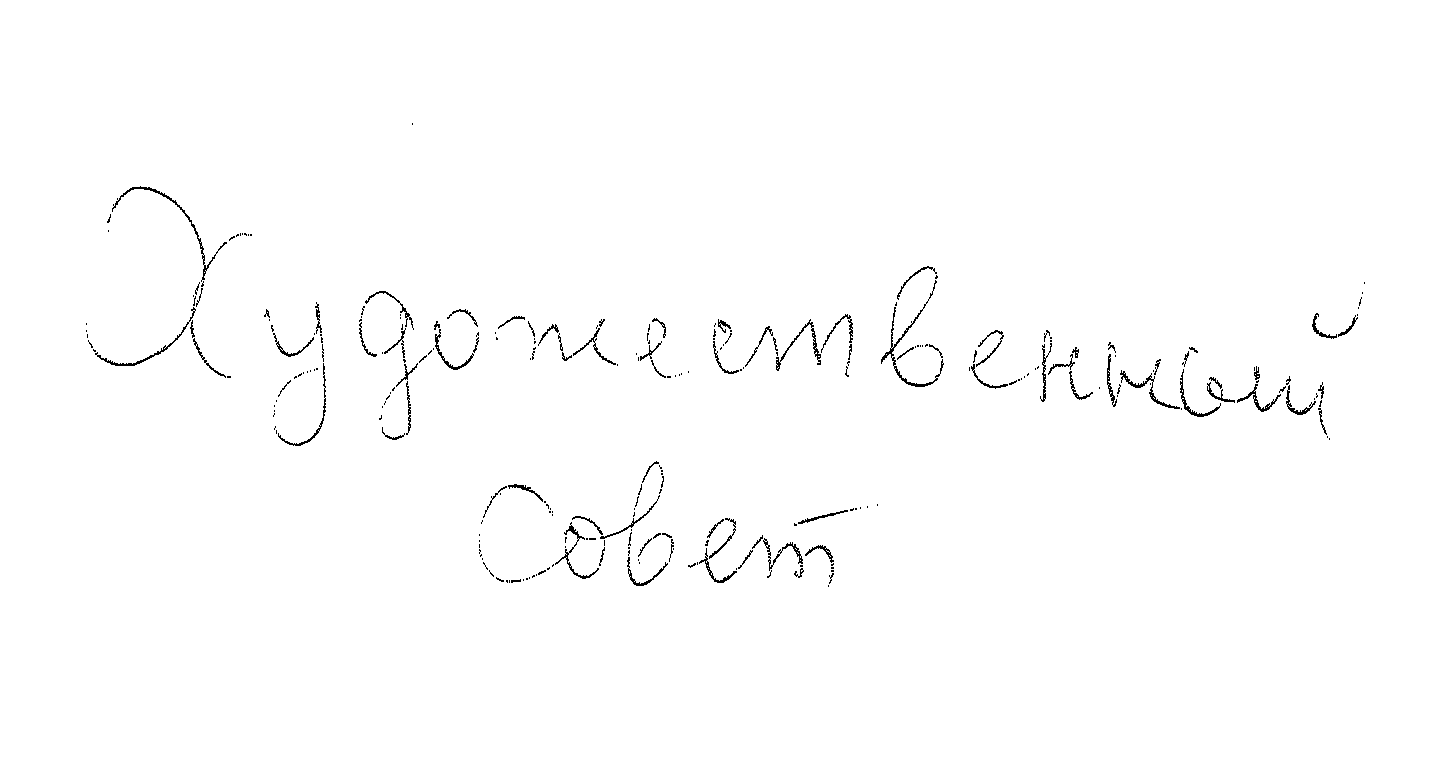 Художественный
совет